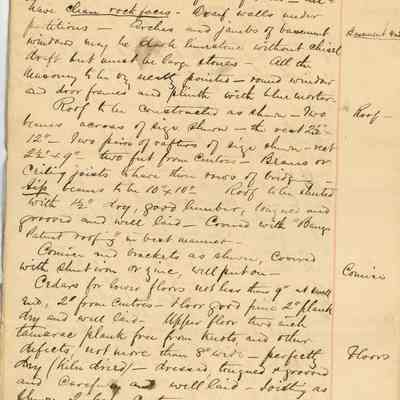 have clean rock faces. Dwarf walls under
partitions — Arches and jambs of basement
windows may be limestone without chisel
draft but must be large stones — All the
masonry to be neatly pointed — round window
and door frames and plinth with blue mortar.
Roof to be constructed as shown — Two
beams across of size shown — the rest
12" — Two pairs of rafters of size shown — rest
2½ x 9" two feet from centres — Beams or
Ceiling joists to have two rows of bridging
beams to be 10 x 10" Roof to be sheeted
with 1½" dry, good lumber, tongued and
grooved and well laid — Covered with "Bangs
Patent roofing" in best manner —
Cornice and brackets as shown, Covered
with sheet iron or zinc, well put on —
Cedars for lower floors not less than 9" at small
end, 2' from centres — Floor good pine 2" plank
dry and well laid — Upper floor two inch
tamarac plank free from knots and other
defects, not more than 8" wide — perfectly
dry (kiln dried) — dressed, tongued & grooved
and Carefully and well laid — Joisting as
Basement
Roof —
Cornice
Floors